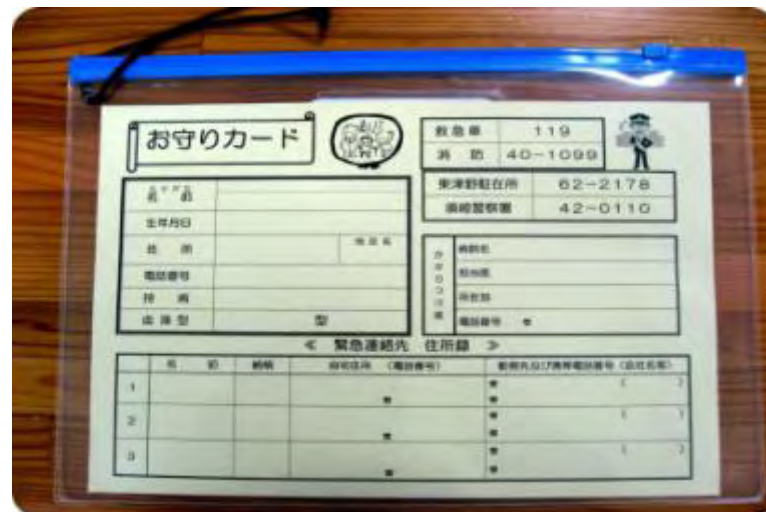 お守りカード
救急車 119
消防 40-1099
東津野駐在所 62-2178
須崎警察署 42-0110
ふりがな
名前
生年月日
住所
電話番号
持病
血液型 型
かかりつけ医
病院名
担当医
所在地
電話番号 ☎
≪ 緊急連絡先 住所録 ≫
名前 続柄 自宅住所 (電話番号) 勤務先及び携帯電話番号 (会社名等)
1 ☎ ☎ ( ) ☎
2 ☎ ☎ ( ) ☎
3 ☎ ☎ ( ) ☎